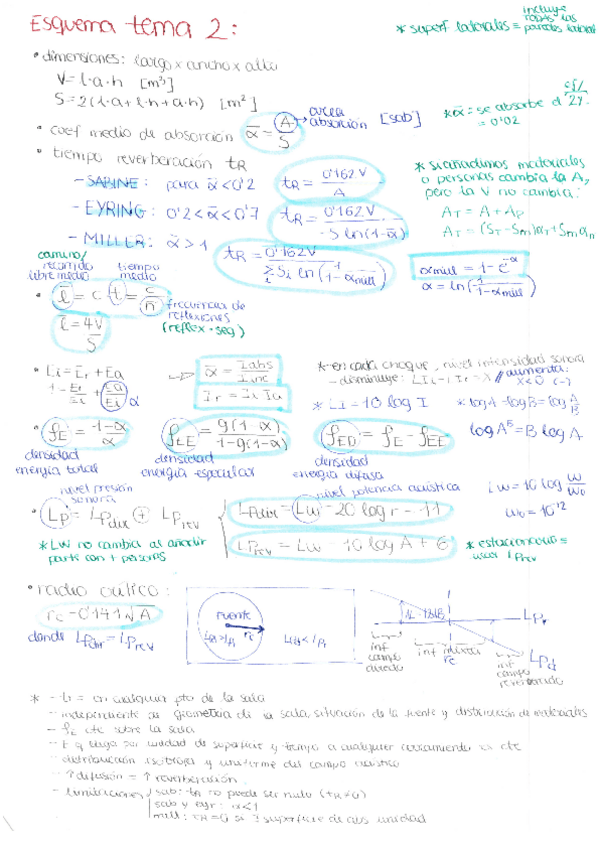 Esquema tema 2:
* superf laterales = incluye todas las paredes lateral
• dimensiones: largo x ancho x alto
V = l·a·h [m³]
S = 2(l·a + l·h + a·h) [m²]
• coef medio de absorción ᾱ = A/S → área absorción [sab]
* ᾱ = se absorbe el 2% = 0'02
• tiempo reverberación tR
- SABINE: para ᾱ < 0'2 tR = 0'162V / A
- EYRING: 0'2 < ᾱ < 0'7 tR = 0'162V / -S ln(1-ᾱ)
- MILLER: ᾱ > 1 tR = 0'162V / Σ Si ln(1/(1-αmill))
* si añadimos materiales
o personas cambia la A,
pero la V no cambia:
AT = A + Ap
AT = (ST - Sm)αT + Sm αm
αmill = 1 - e^-α
α = ln(1/(1-αmill))
camino/recorrido libre medio
tiempo medio
• l̄ = c t̄ = c/n̄
frecuencia de reflexiones (reflex·seg)
l̄ = 4V/S
• Ei = Er + Ea
1 = Er/Ei + Ea/Ei α
ᾱ = Iabs/Iinc
Ir = Ii Ia
* en cada choque, nivel intensidad sonora
- disminuye: LIi - Ir = X // aumenta: X<0 (-)
* Li = 10 log I
* log A - log B = log A/B
log A^B = B log A
• ρE = 1-α / α
densidad energía total
ρEE = g(1-α) / 1-g(1-α)
densidad energía especular
ρED = ρE - ρEE
densidad energía difusa
nivel presión sonora
• Lp = Lpdir ⊕ Lprev
nivel potencia acústica
Lpdir = Lw - 20 log r - 11
Lprev = Lw - 10 log A + 6
Lw = 10 log W/W0
W0 = 10^12
* Lw no cambia al añadir
parte con 1 persona
* estacionario =
usar Lprev
• radio crítico:
rc = 0'141√A
donde Lpdir = Lprev
fuente
rc
Lpr
Lpd
inf campo directo
inf mixta
rc
inf campo reverberado
* - tR = en cualquier pto de la sala
- independiente de geometría de la sala, situación de la fuente y distribución de materiales
- ρE cte sobre la sala
- E q llega por unidad de superficie y tiempo a cualquier cerramiento es cte
- distribución isótropa y uniforme del campo acústico
- ↑difusión = ↑reverberación
- limitaciones / sab: tR no puede ser nulo (tR≠0)
sab y eyr: α<1
mill: tR=0 si ∃ superficie de abs unidad